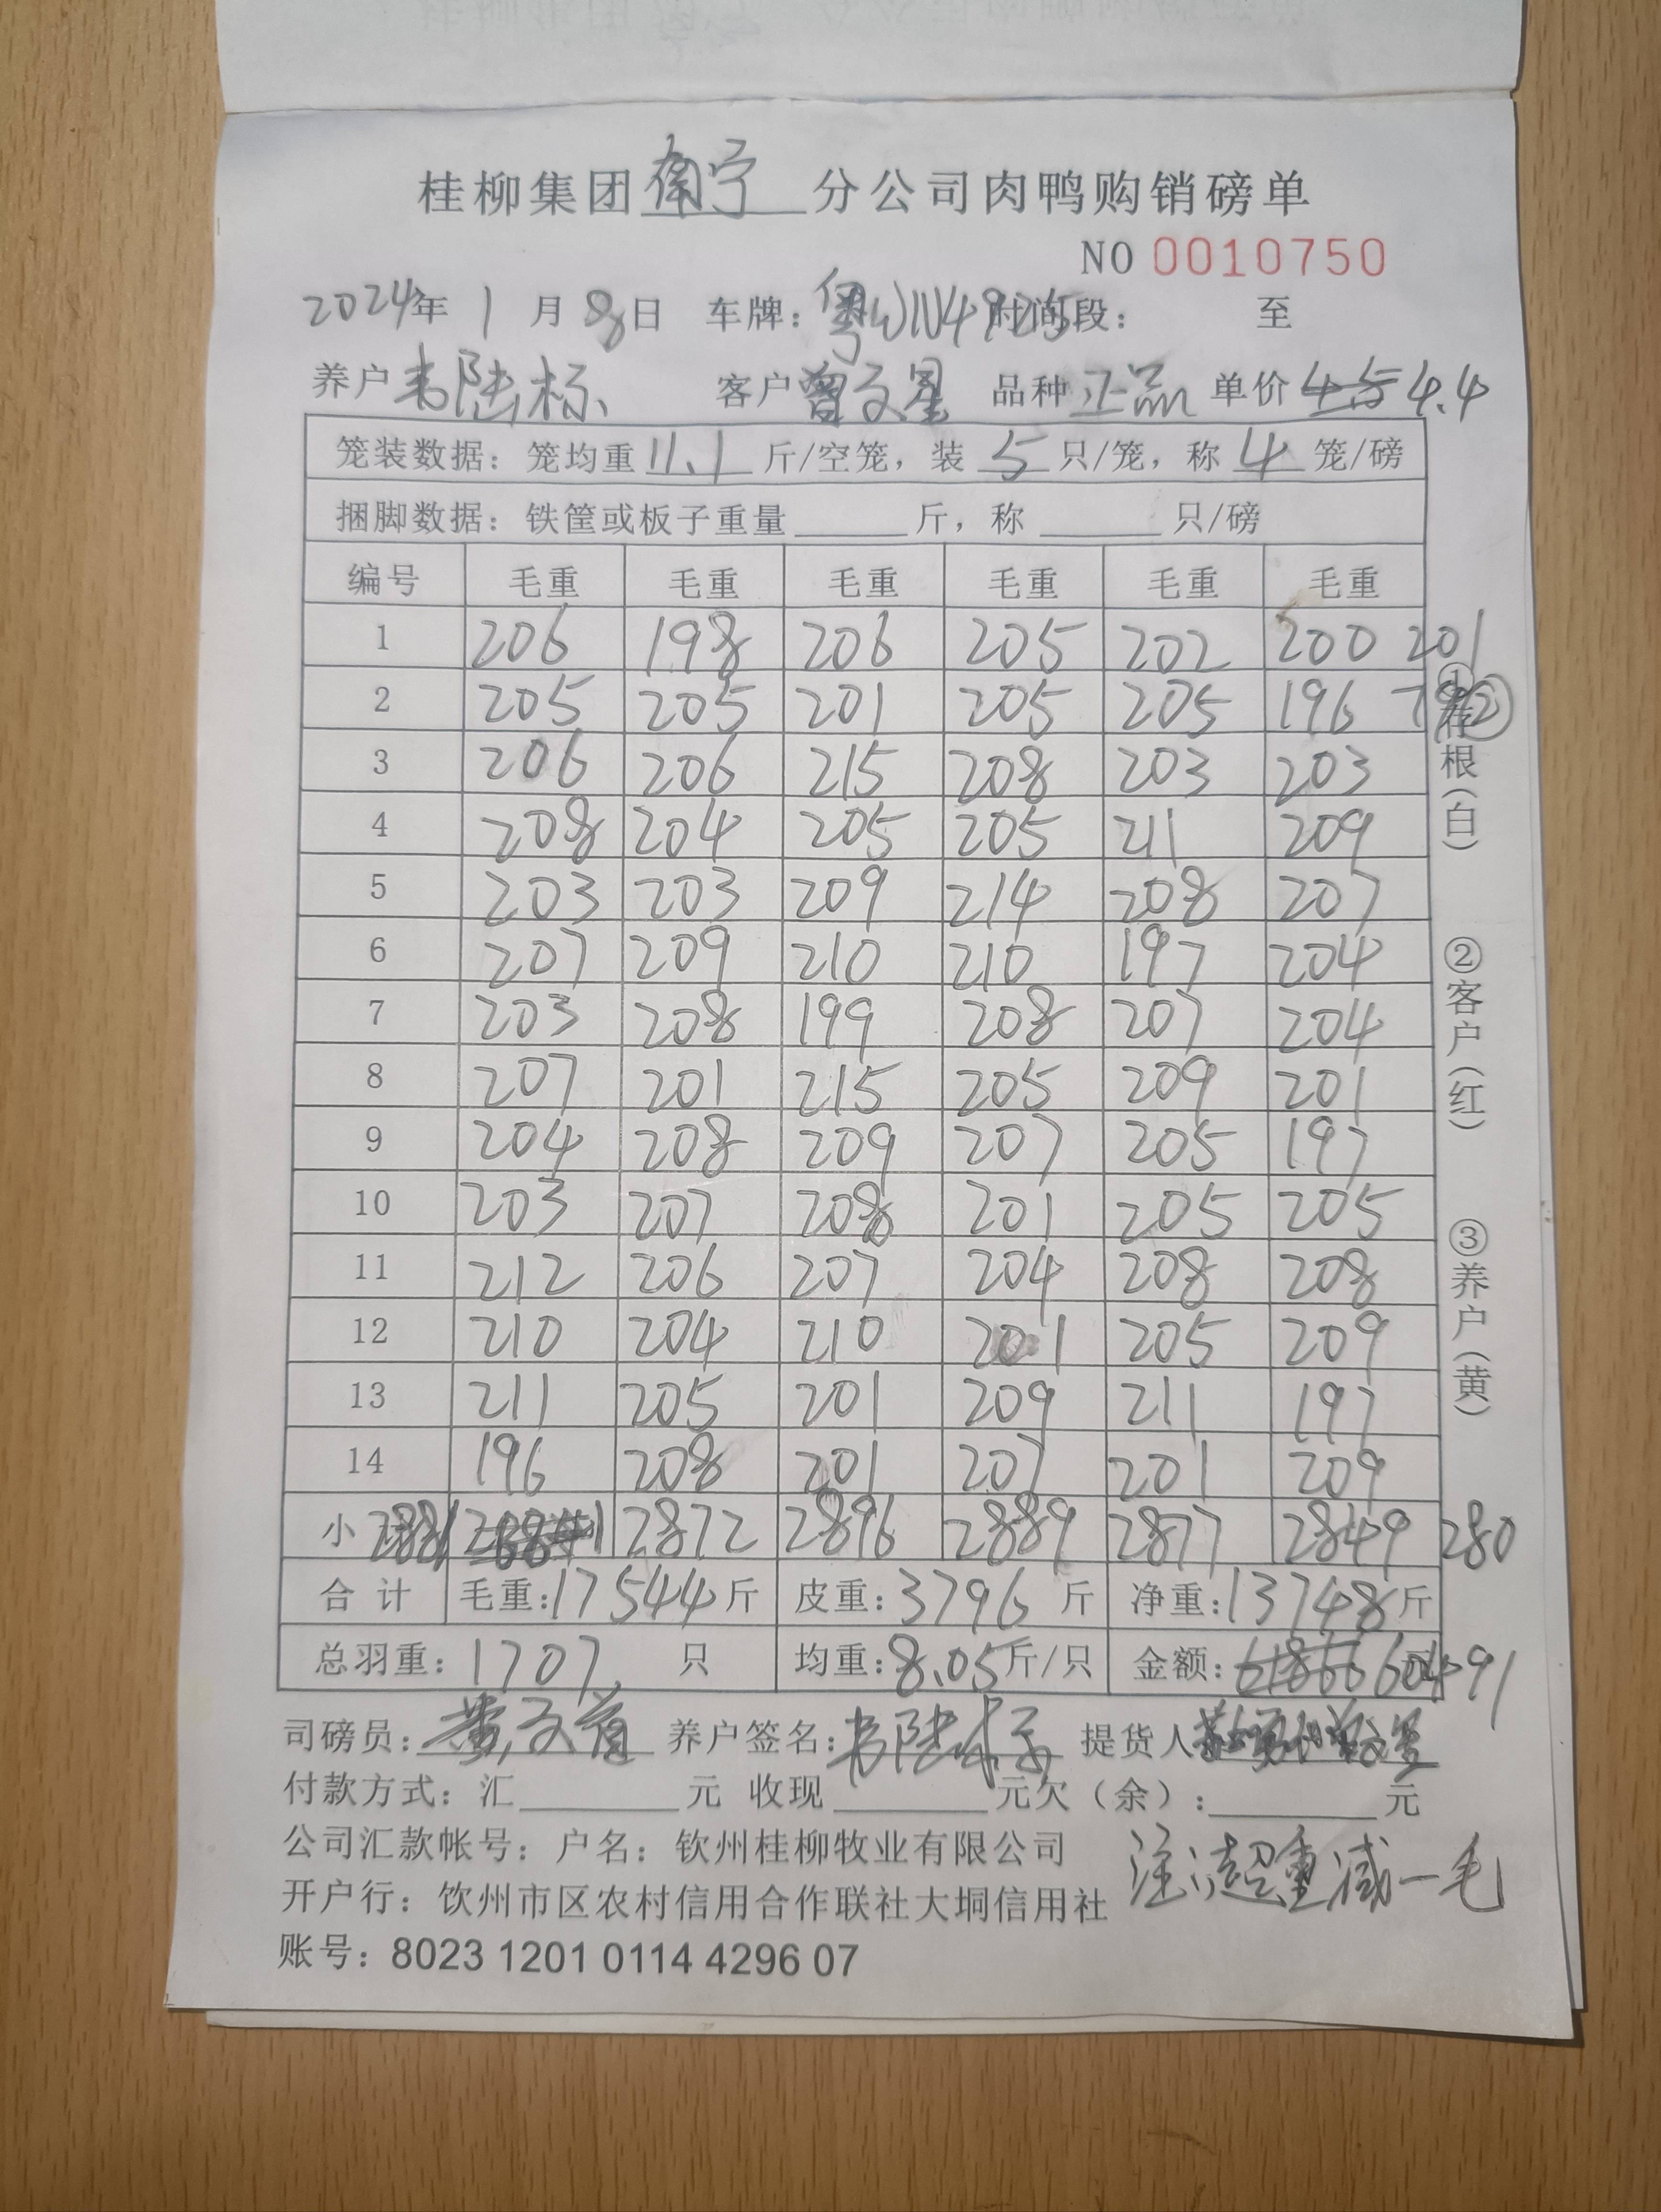 桂柳集团南宁分公司肉鸭购销磅单
NO 0010750
2024年 1 月 8日 车牌: 粤WN49 时间段: 至
养户 韦陆标 客户 曾文星 品种 正品 单价 4.5 4.4
笼装数据: 笼均重 11.1 斤/空笼, 装 5 只/笼, 称 4 笼/磅
捆脚数据: 铁筐或板子重量______斤, 称______只/磅
编号 毛重 毛重 毛重 毛重 毛重 毛重
1 206 198 206 205 202 200 201
2 205 205 201 205 205 196 ②
3 206 206 215 208 203 203
4 208 204 205 205 211 209
5 203 203 209 214 208 207
6 207 209 210 210 197 204
7 203 208 199 208 207 204
8 207 201 215 205 209 201
9 204 208 209 207 205 197
10 203 207 208 201 205 205
11 212 206 207 204 208 208
12 210 204 210 201 205 209
13 211 205 201 209 211 197
14 196 208 201 207 201 209
小 2881 2872 2896 2889 2877 2849 280
合计 毛重:17544斤 皮重:3796斤 净重:13748斤
总羽重: 1707 只 均重:8.05斤/只 金额: 61866 60491
司磅员: 养户签名:韦陆标 提货人
付款方式: 汇______元 收现______元欠(余):______元
公司汇款帐号: 户名: 钦州桂柳牧业有限公司
注:超重减一毛
开户行: 饮州市区农村信用合作联社大垌信用社
账号: 8023 1201 0114 4296 07
①存根(白)
②客户(红)
③养户(黄)